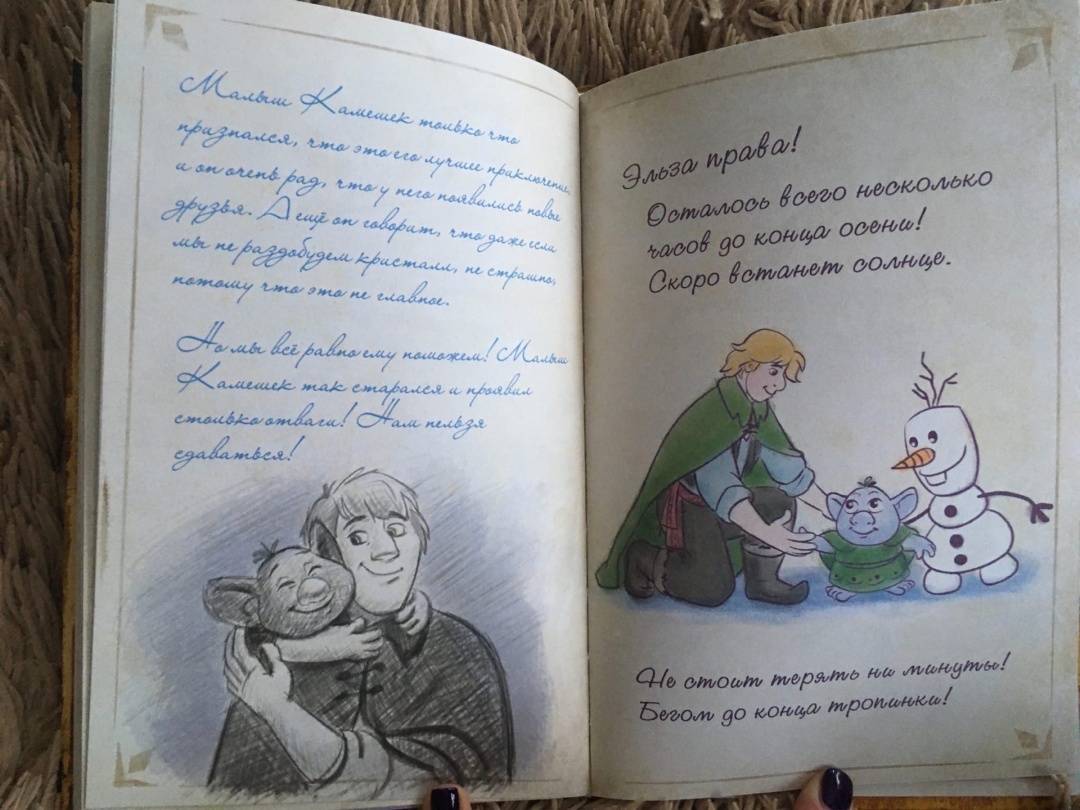 Малыш Камешек только что
признался, что это его лучшее приключение,
и он очень рад, что у него появились новые
друзья. А ещё он говорит, что даже если
мы не раздобудем кристалл, не страшно,
потому что это не главное.
Но мы всё равно ему поможем! Малыш
Камешек так старался и проявил
столько отваги! Нам нельзя
сдаваться!
Эльза права!
Осталось всего несколько
часов до конца осени!
Скоро встанет солнце.
Не стоит терять ни минуты!
Бегом до конца тропинки!